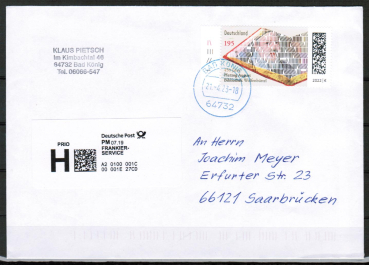 KLAUS PIETSCH
Im Kimbachtal 46
64732 Bad König
Tel. 06066-547
Deutschland
195
64732
PRIO
H
Deutsche Post
PM 07.15
FRANKIER-
SERVICE
A2 0100 001C
00 001E 27C0
An Herrn
Joachim Meyer
Erfurter Str. 23
66121 Saarbrücken